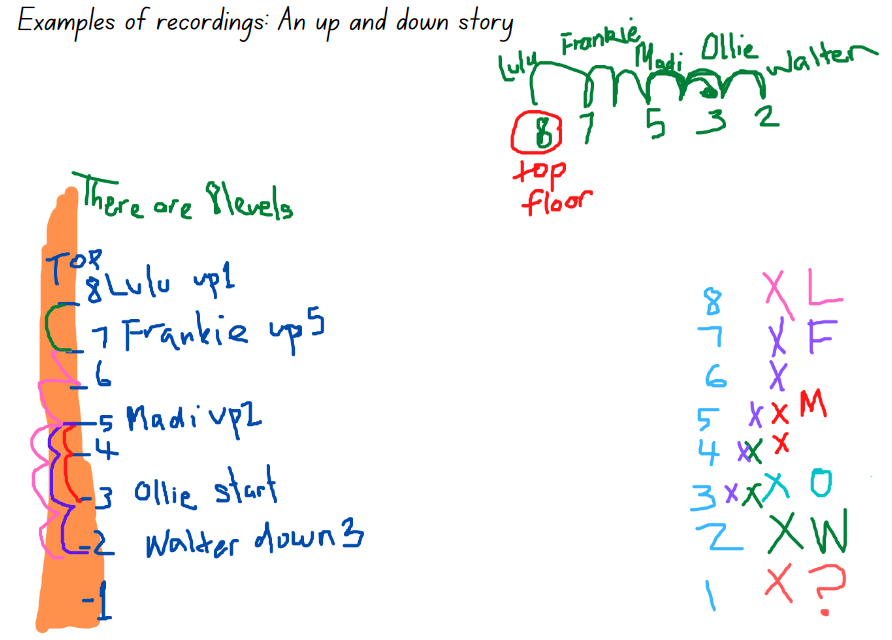 Examples of recordings: An up and down story
Lulu Frankie Madi Ollie Walter
8 7 5 3 2
top
floor
There are 8 levels
TOP
8 Lulu up1
7 Frankie up5
6
5 Madi up2
4
3 Ollie start
2 Walter down 3
1
8 X L
7 X F
6 X
5 X X M
4 X X X
3 X X X O
2 X W
1 X ?